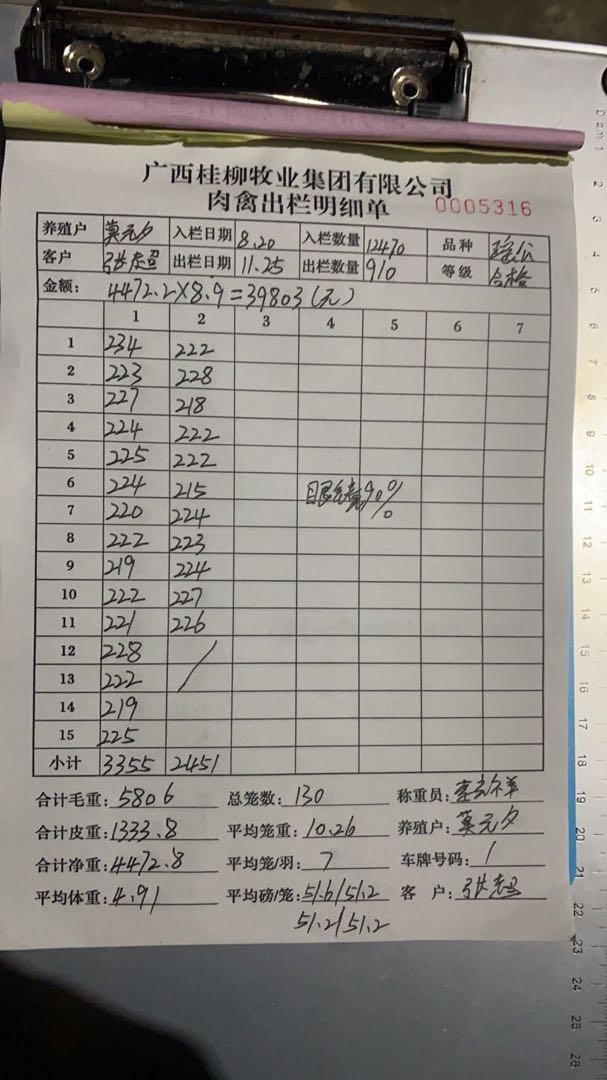 广西桂柳牧业集团有限公司
肉禽出栏明细单 0005316
养殖户 莫元夕 入栏日期 8.20 入栏数量 12470 品种 瑶公
客户 张志超 出栏日期 11.25 出栏数量 910 等级 合格
金额: 4472.2×8.9=39803(元)
1 2 3 4 5 6 7
1 234 222
2 223 228
3 227 218
4 224 222
5 225 222
6 224 215 眼镜90%
7 220 224
8 222 223
9 219 224
10 222 227
11 221 226
12 228
13 222
14 219
15 225
小计 3355 2451
合计毛重: 5806 总笼数: 130 称重员:
合计皮重: 1333.8 平均笼重: 10.26 养殖户: 莫元夕
合计净重: 4472.8 平均笼/羽: 7 车牌号码: /
平均体重: 4.91 平均磅/笼: 51.6/51.2 客 户:
51.2/51.2